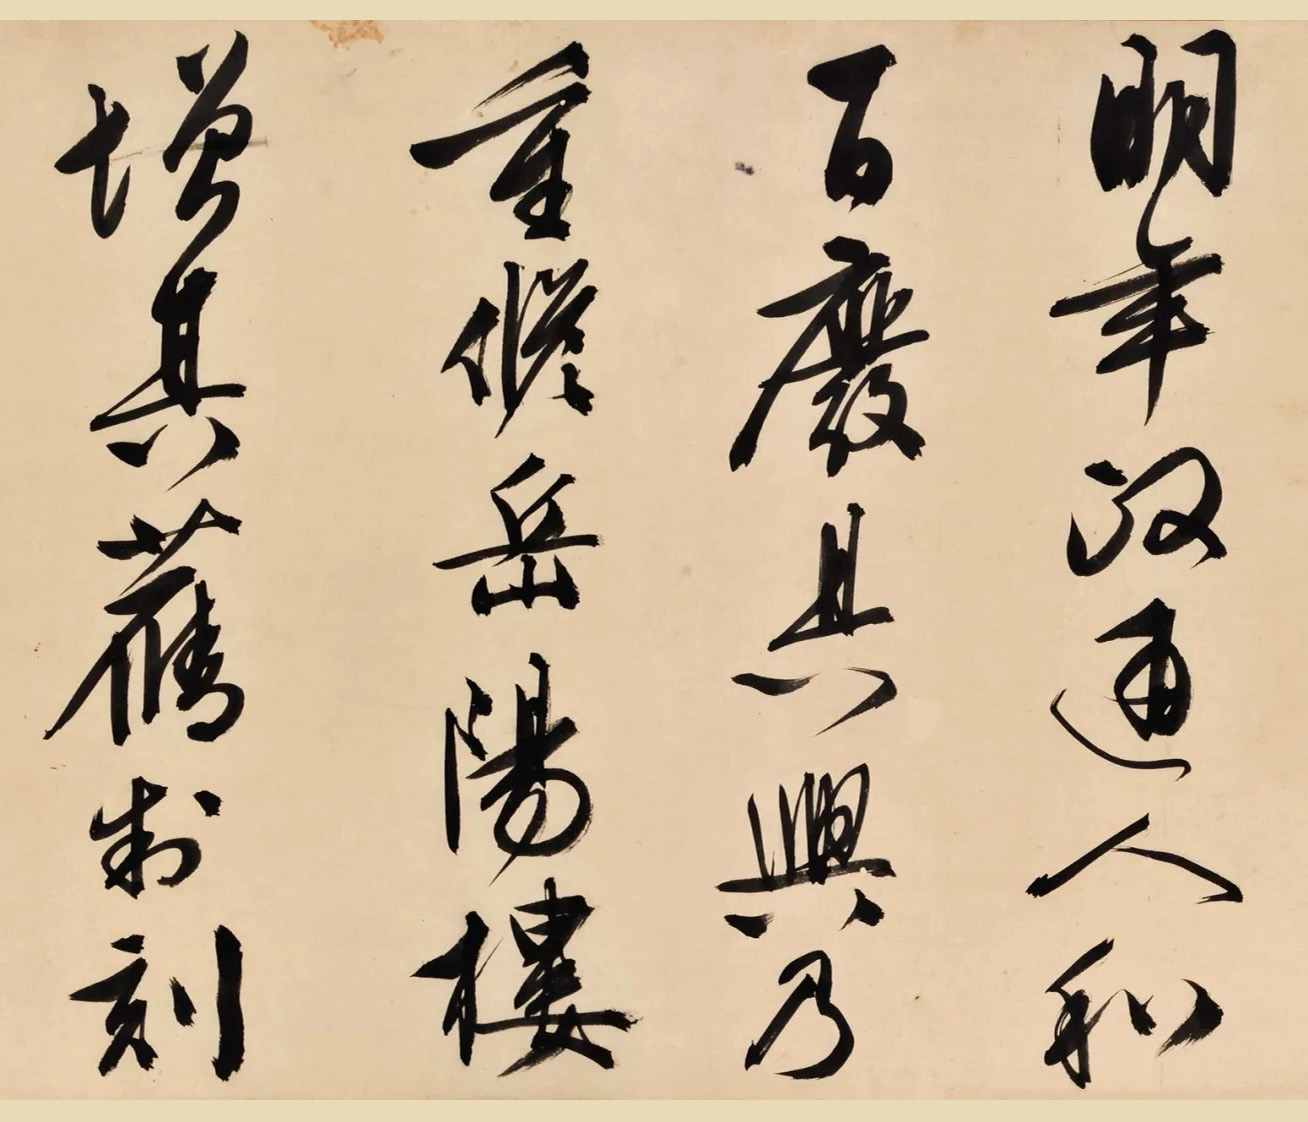 明年政通人和
百廢具興乃
重修岳陽樓
增其舊制刻